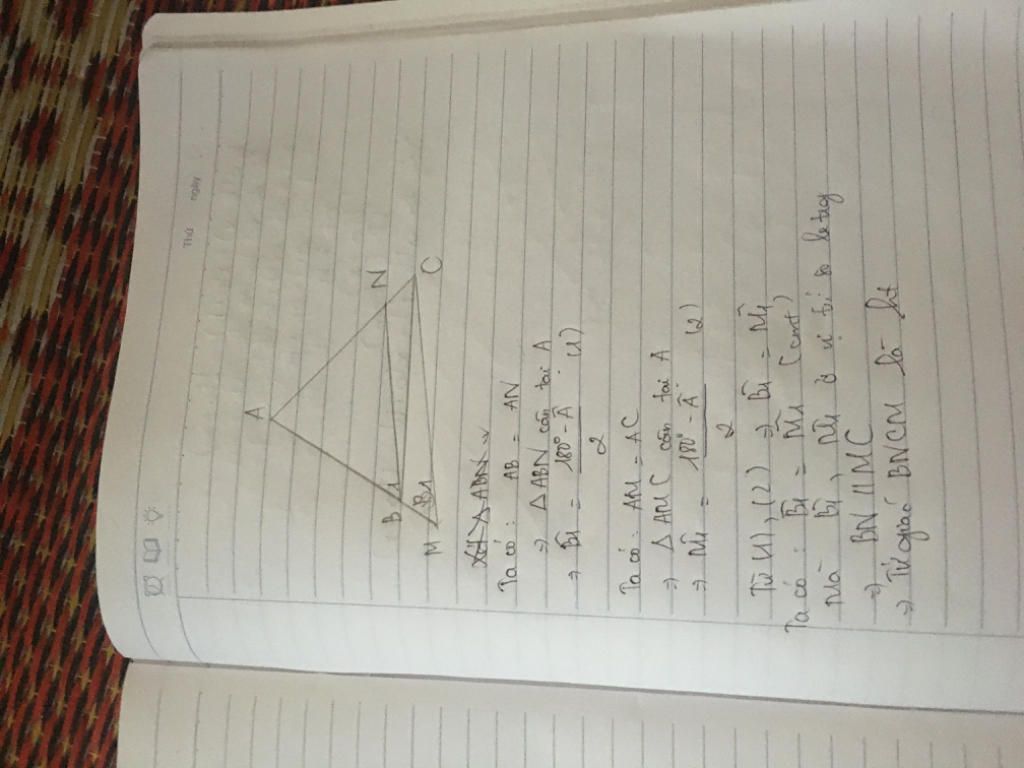 Thứ
ngày
A
B
1
N
B1
M
C
Xét Δ ABN v
Ta có : AB = AN
=> Δ ABN cân tại A
=> B̂1 = 180° - Â / 2 (1)
Ta có : AM = AC
=> Δ AMC cân tại A
=> M̂1 = 180° - Â / 2 (2)
Từ (1), (2) => B̂1 = M̂1
Ta có : B̂1 = M̂1 (cmt)
Mà B̂1, M̂1 ở vị trí so le tag
=> BN // MC
=> Tứ giác BNCM là ht